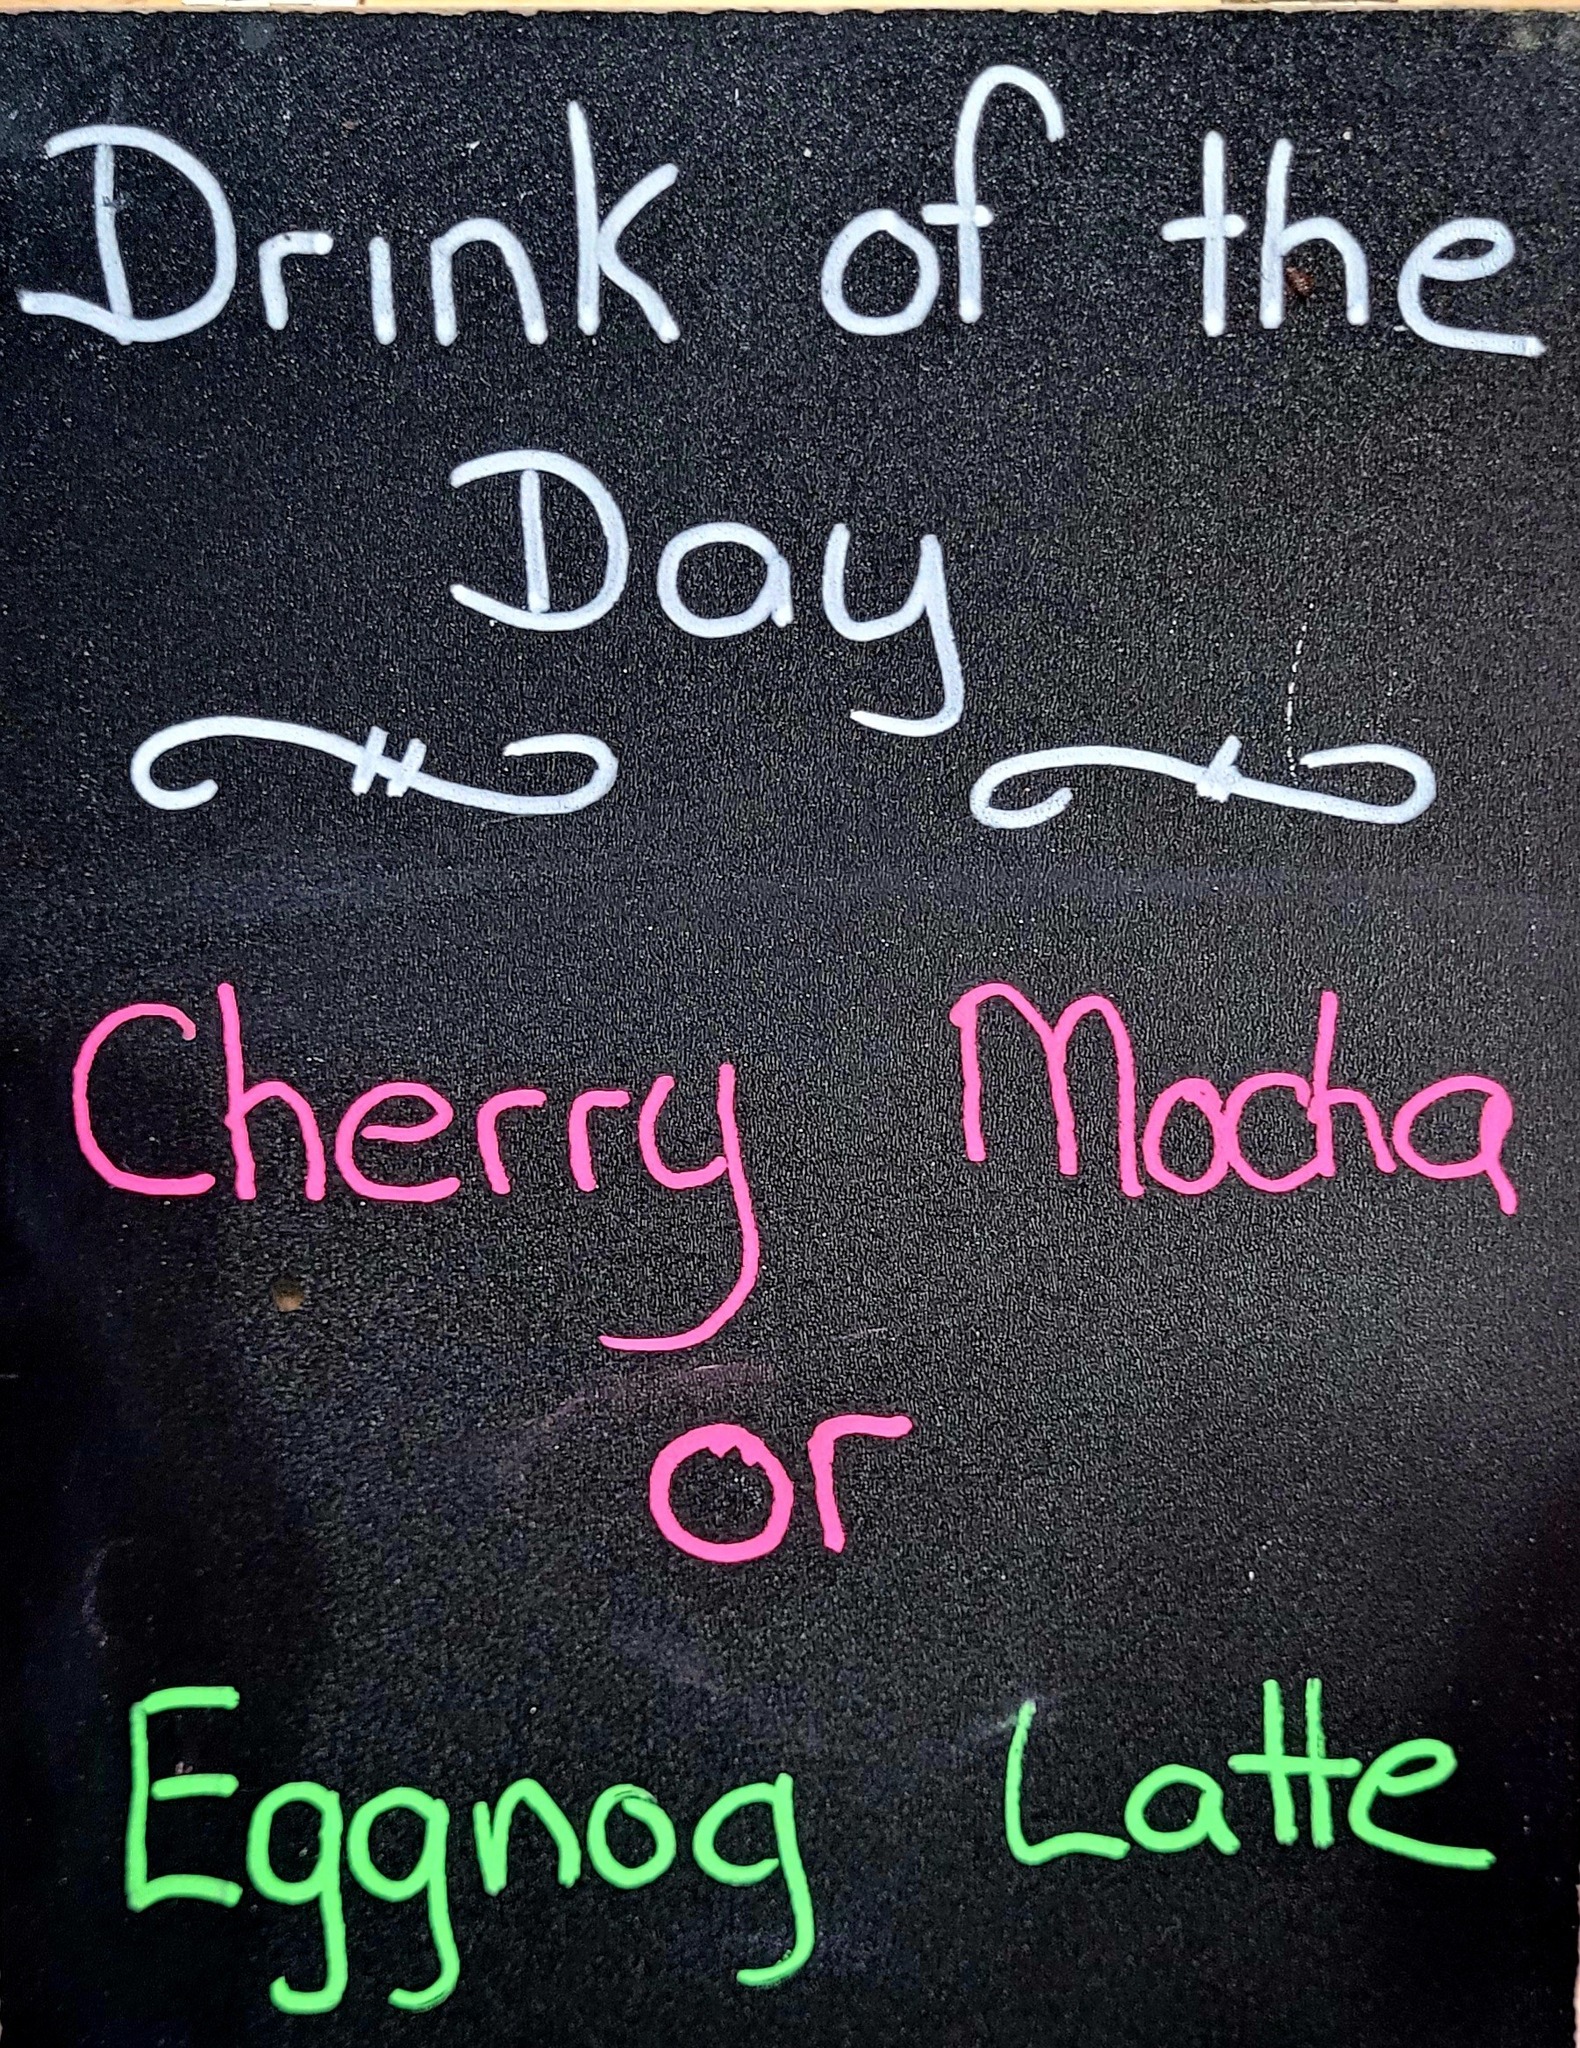 Drink of the
Day
Cherry Mocha
or
Eggnog Latte